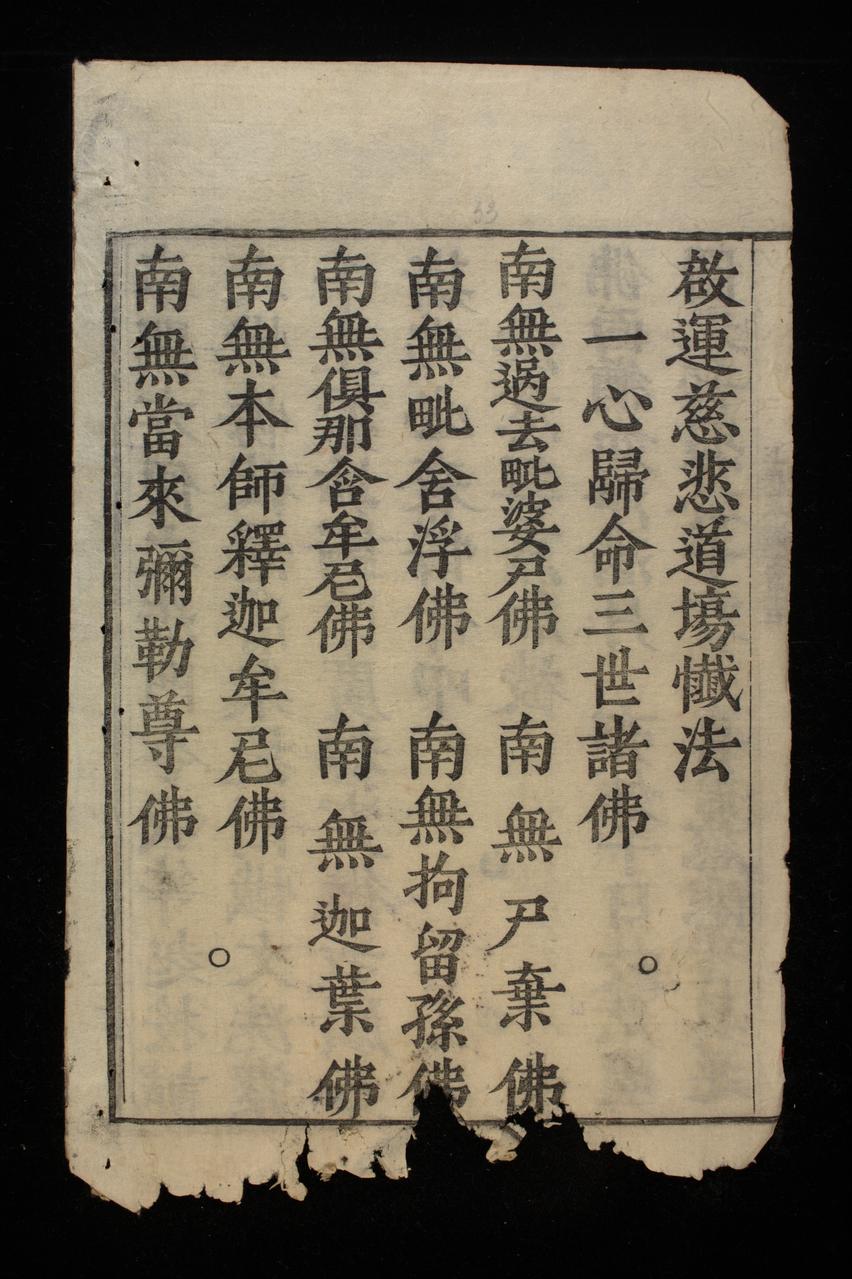 啟運慈悲道塲懺法
一心歸命三世諸佛 ○
南無過去毗婆尸佛 南無尸棄佛
南無毗舍浮佛 南無拘留孫佛
南無俱那含牟尼佛 南無迦葉佛
南無本師釋迦牟尼佛 ○
南無當來彌勒尊佛
33